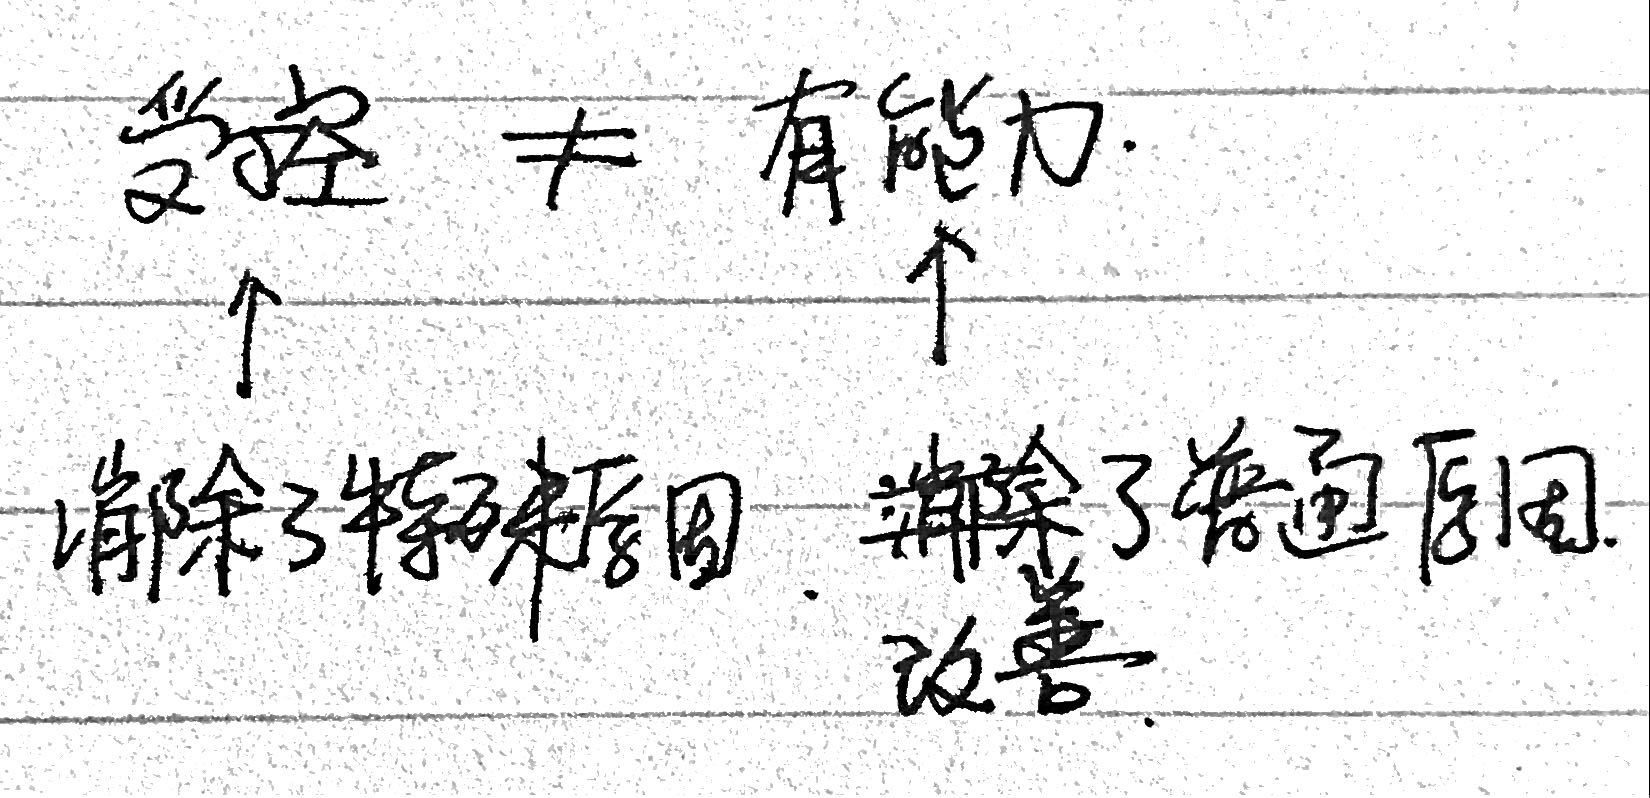 受控 ≠ 有能力.
↑ ↑
消除了特殊原因. 消除了普通原因.
改善.